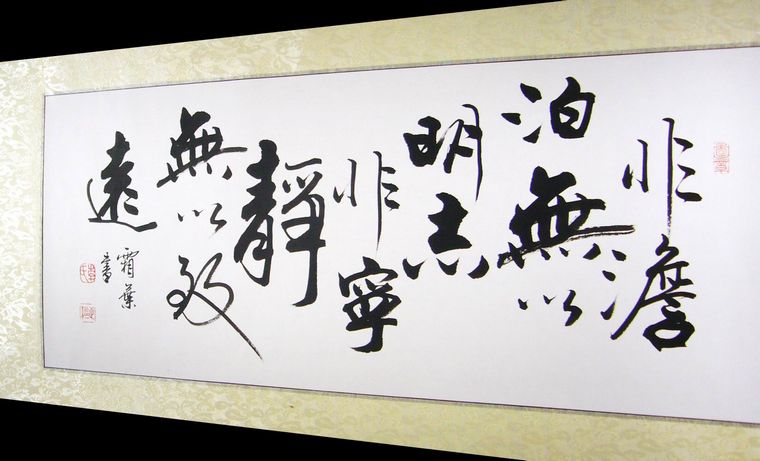 非澹
泊無以
明志
非寧
靜
無以致
遠
霜葉
書